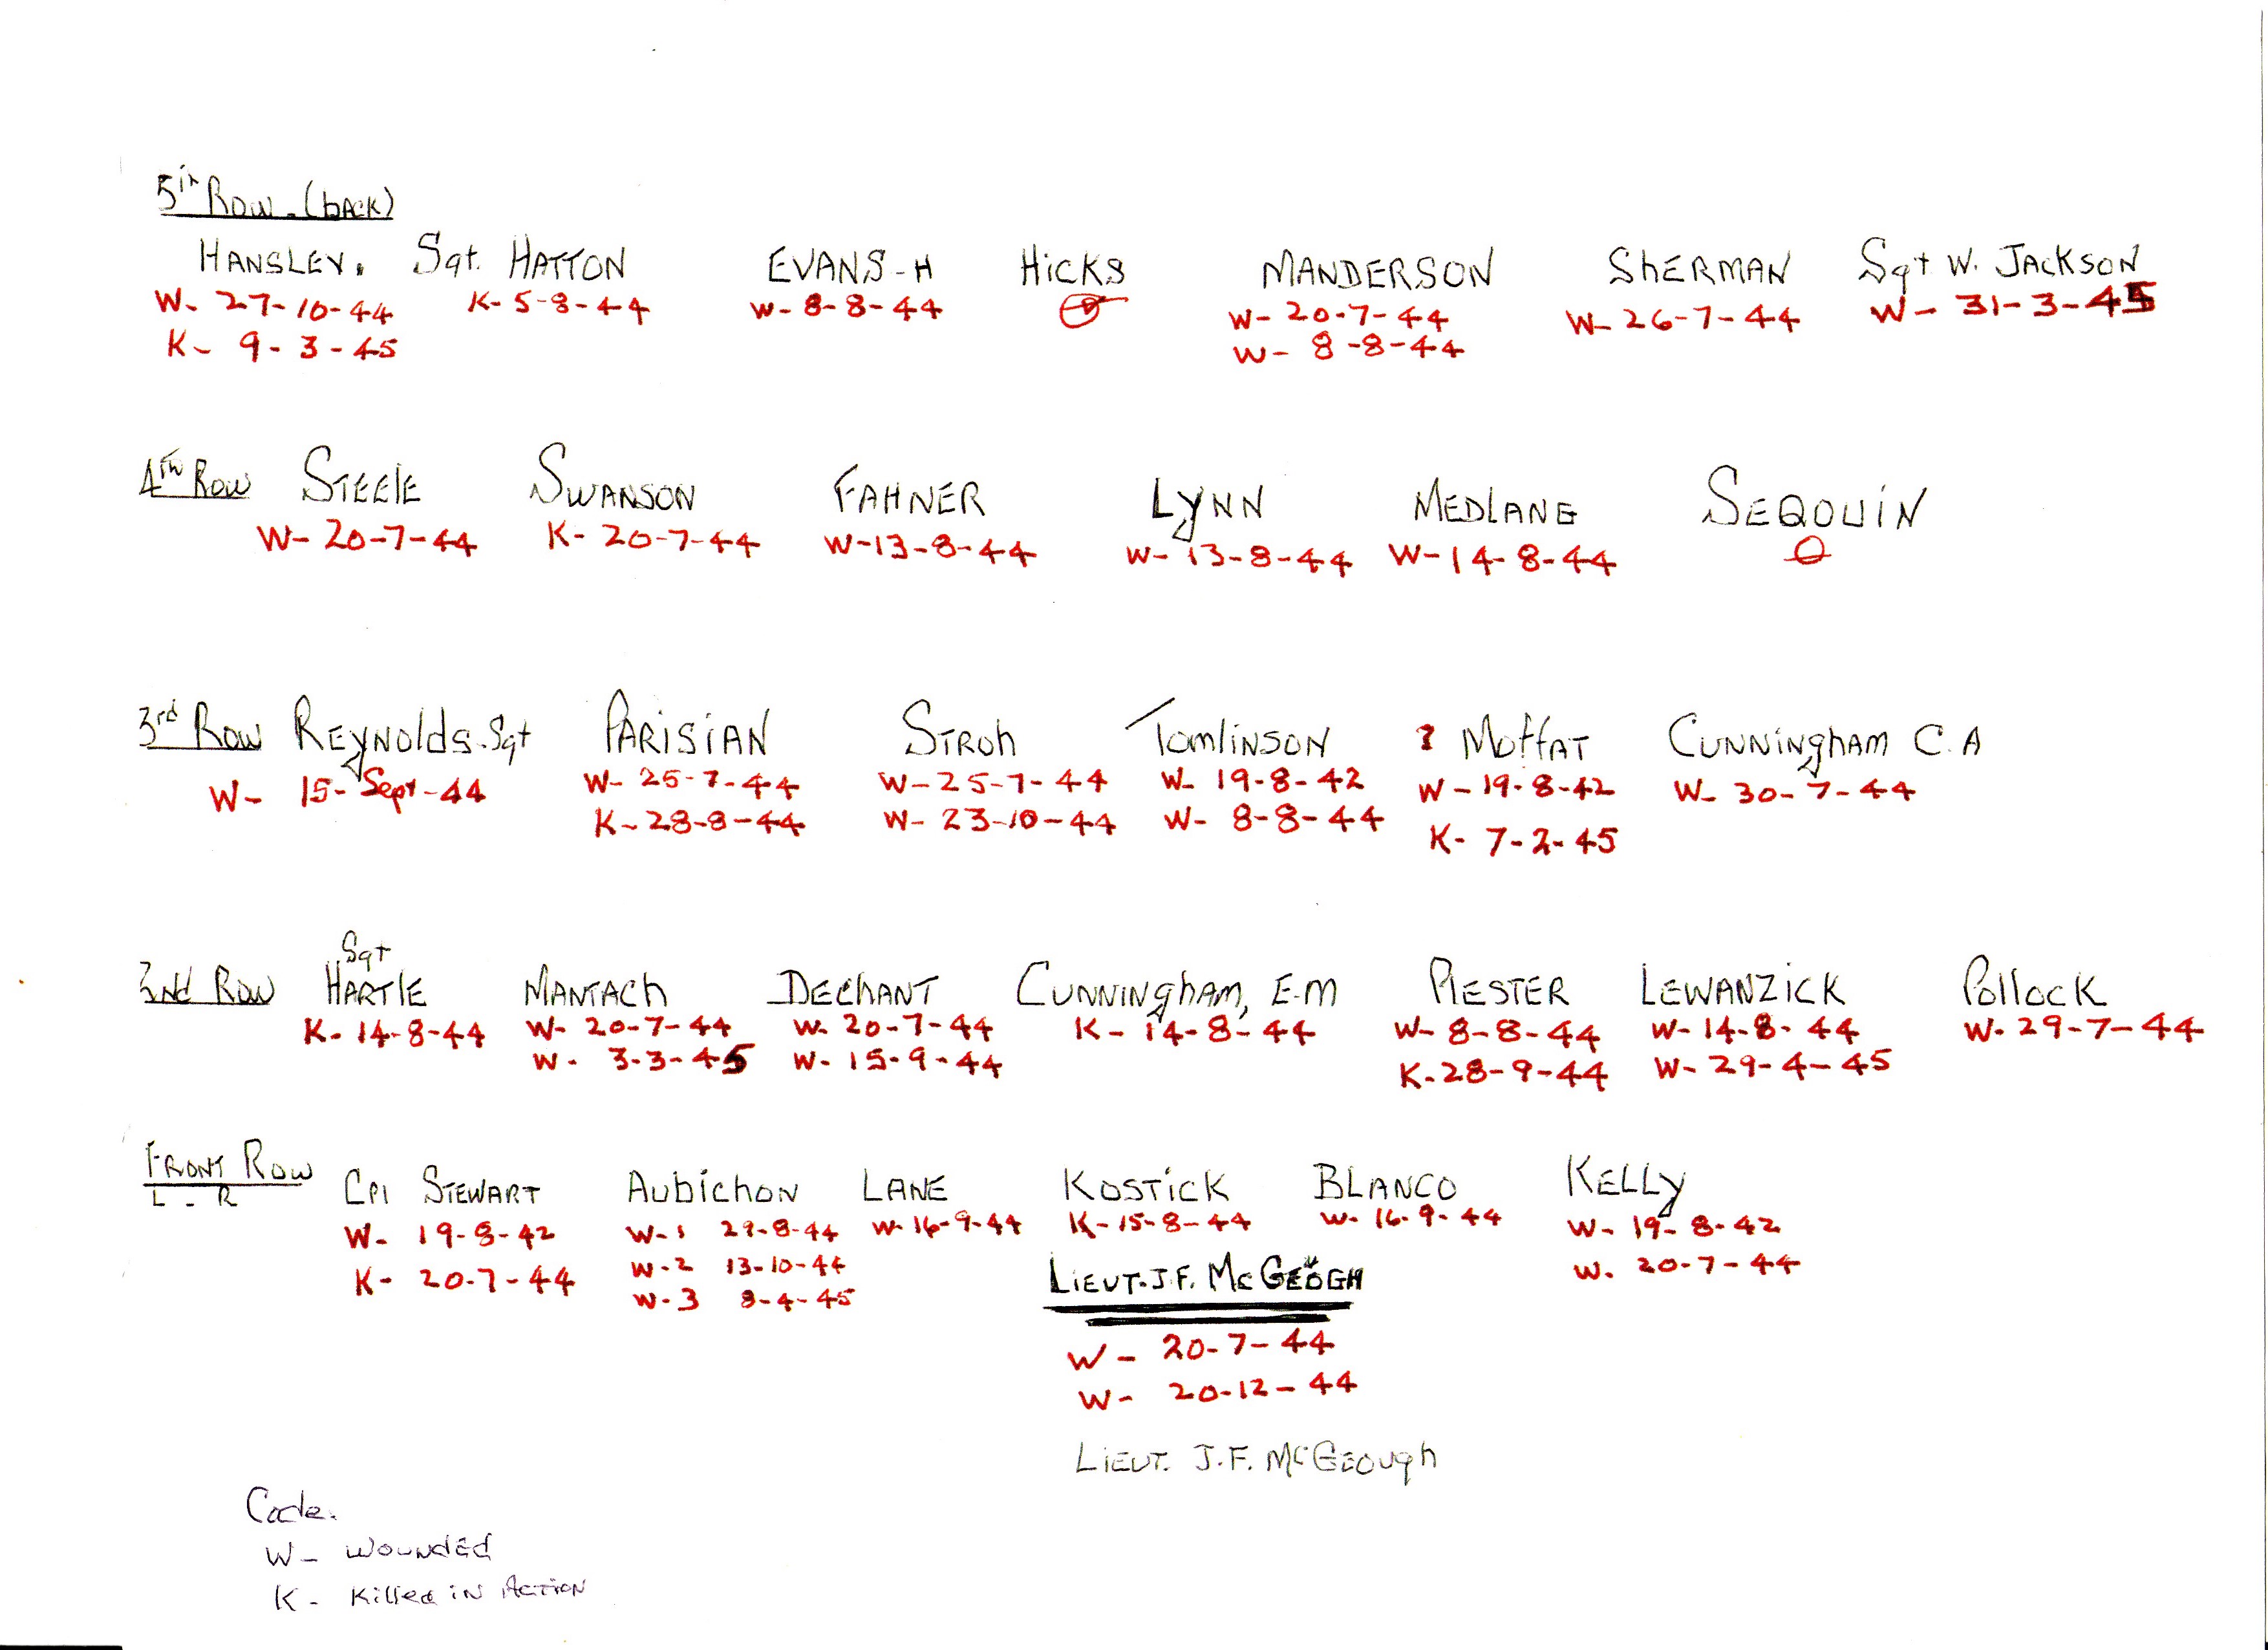 5th Row - (back)
HANSLEY. Sgt. HATTON EVANS-H HICKS MANDERSON SHERMAN Sgt W. JACKSON
W- 27-10-44 K-5-8-44 W-8-8-44 W-20-7-44 W-26-7-44 W-31-3-45
K- 9-3-45 W- 8-8-44
4TH Row STEELE SWANSON FAHNER LYNN MEDLANG SEQOUIN
W-20-7-44 K-20-7-44 W-13-8-44 W-13-8-44 W-14-8-44 O
3rd Row REYNOLDS.Sgt PARISIAN STROH TOMLINSON ? MOFFAT CUNNINGHAM C.A
W- 15-Sept-44 W-25-7-44 W-25-7-44 W-19-8-42 W-19-8-42 W-30-7-44
K-28-8-44 W-23-10-44 W-8-8-44 K-7-2-45
Sgt
2nd Row HARTLE MANTACH DECHANT CUNNINGHAM, E.M PIESTER LEWANZICK POLLOCK
K-14-8-44 W-20-7-44 W-20-7-44 K-14-8-44 W-8-8-44 W-14-8-44 W-29-7-44
W- 3-3-45 W-15-9-44 K-28-9-44 W-29-4-45
FRONT ROW
L - R
Cpl STEWART AUBICHON LANE KOSTICK BLANCO KELLY
W- 19-8-42 W-1 29-8-44 W-16-9-44 K-15-8-44 W-16-9-44 W-19-8-42
K- 20-7-44 W-2 13-10-44 W. 20-7-44
W-3 8-4-45
LIEUT. J.F. McGEOGH
W- 20-7-44
W- 20-12-44
LIEUT. J.F. McGEOUGH
Code.
W- WOUNDED
K- Killed in Action